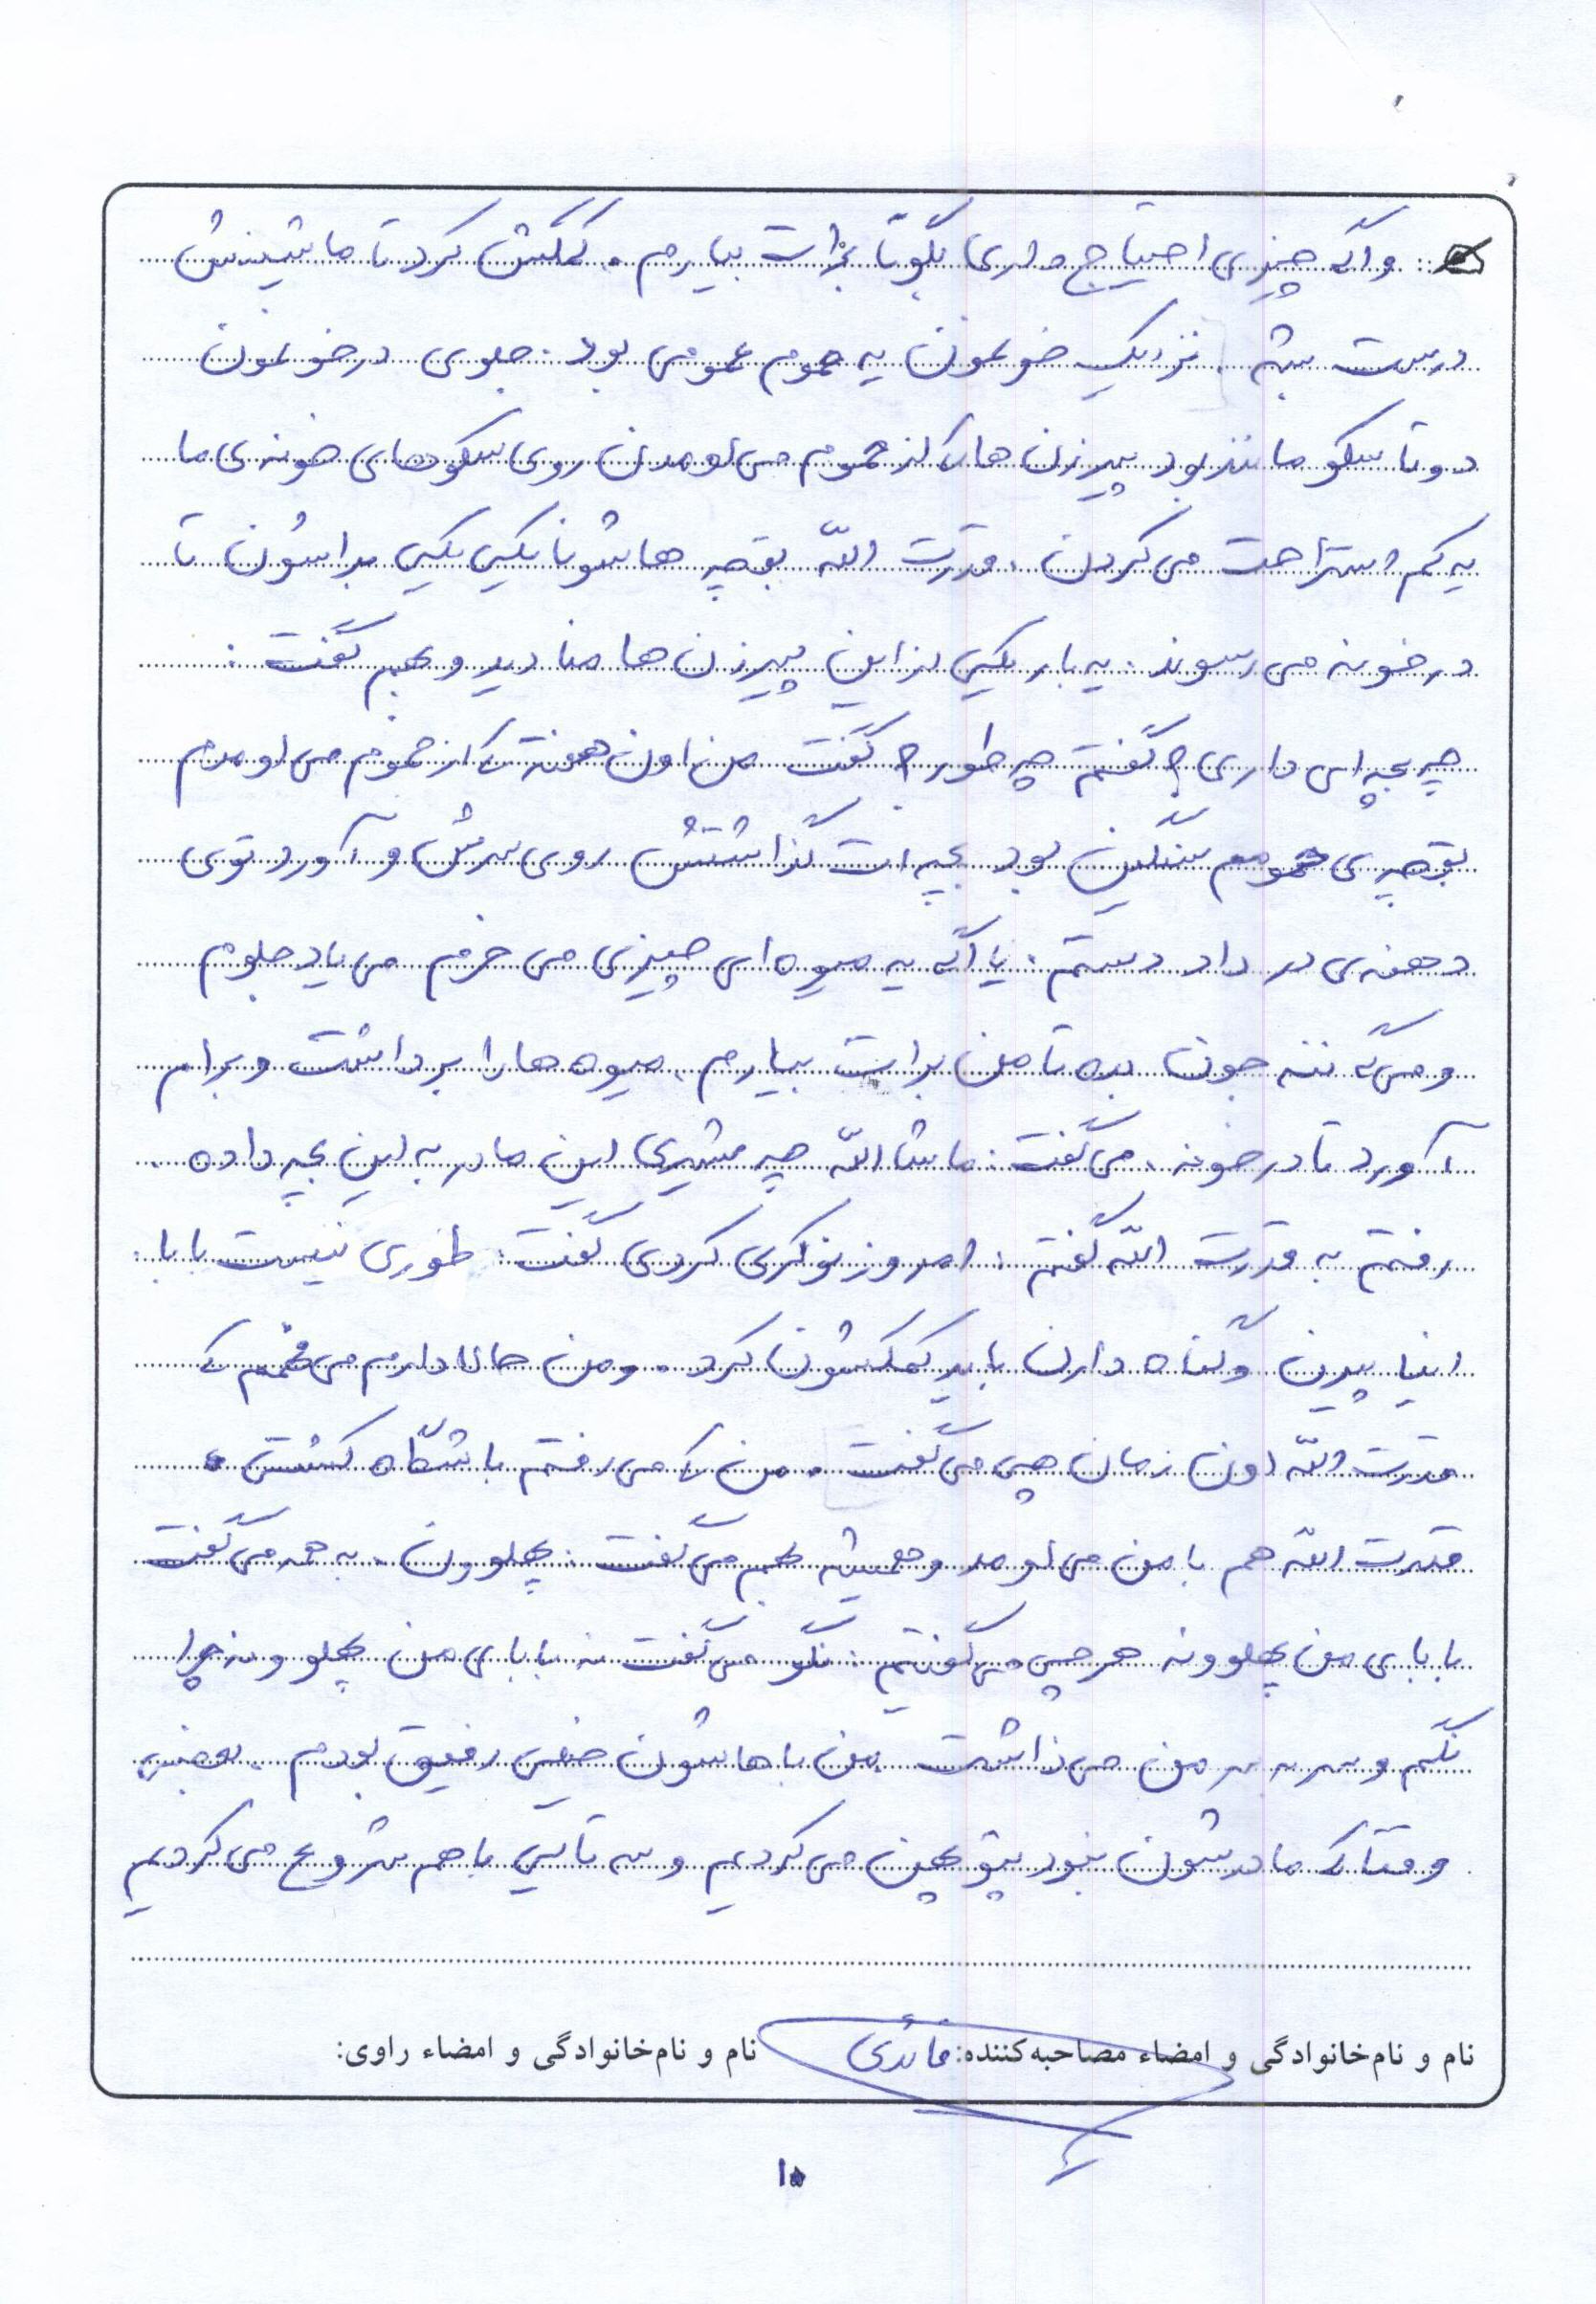 واگه چیزی احتیاج داری بگو تا برات بیارم. کمکش کرد تا ماشینش
درست بشه. نزدیک خونمون یه حموم عمومی بود. جلوی در خونمون
دو تا سکو مانند بود پیرزن ها که از حموم می اومدن روی سکوهای خونه ی ما
یه کم استراحت می کردن. قدرت اللّه بقچه هاشونا یکی یکی براشون تا
در خونه می رسوند. یه بار یکی از این پیرزن ها منا دید و بهم گفت:
چه بچه اس داری؟ گفتم چه طور؟ گفت من اون هفته که از حموم می اومدم
بقچه ی حمومم سنگین بود بچه ات گذاشتش روی سرش و آورد توی
دهنه ی در داد دستم. یا اگه یه میوه ای چیزی می خرم می یاد جلوم
و می گه ننه جون بده تا من برات بیارم، میوه ها را برداشت و برام
آورد تا در خونه، می گفت: ماشااللّه چه شیری این مادر به این بچه داده.
رفتم به قدرت اللّه گفتم: امروز نوکری کردی گفت: طوری نیست بابا.
اینا پیرن و گناه دارن باید کمکشون کرد. و من حالا دارم می فهمم که
قدرت اللّه اون زمان چی می گفت. من که می رفتم باشگاه کشتی.
قدرت اللّه هم با من می اومد و همیشه بهم می گفت: پهلوون. به همه می گفت
بابای من پهلوونه هر چی می گفتیم: نگو می گفت نه بابای من پهلوونه چرا
نگم و سر به سر من می ذاشت. من باهاشون خیلی رفیق بودم. بعضی
وقتا که مادرشون نبود پتو پهن می کردیم و سه تایی با هم شروع می کردیم
نام و نام‌خانوادگی و امضاء مصاحبه‌کننده: قائدی نام و نام‌خانوادگی و امضاء راوی:
۱۰